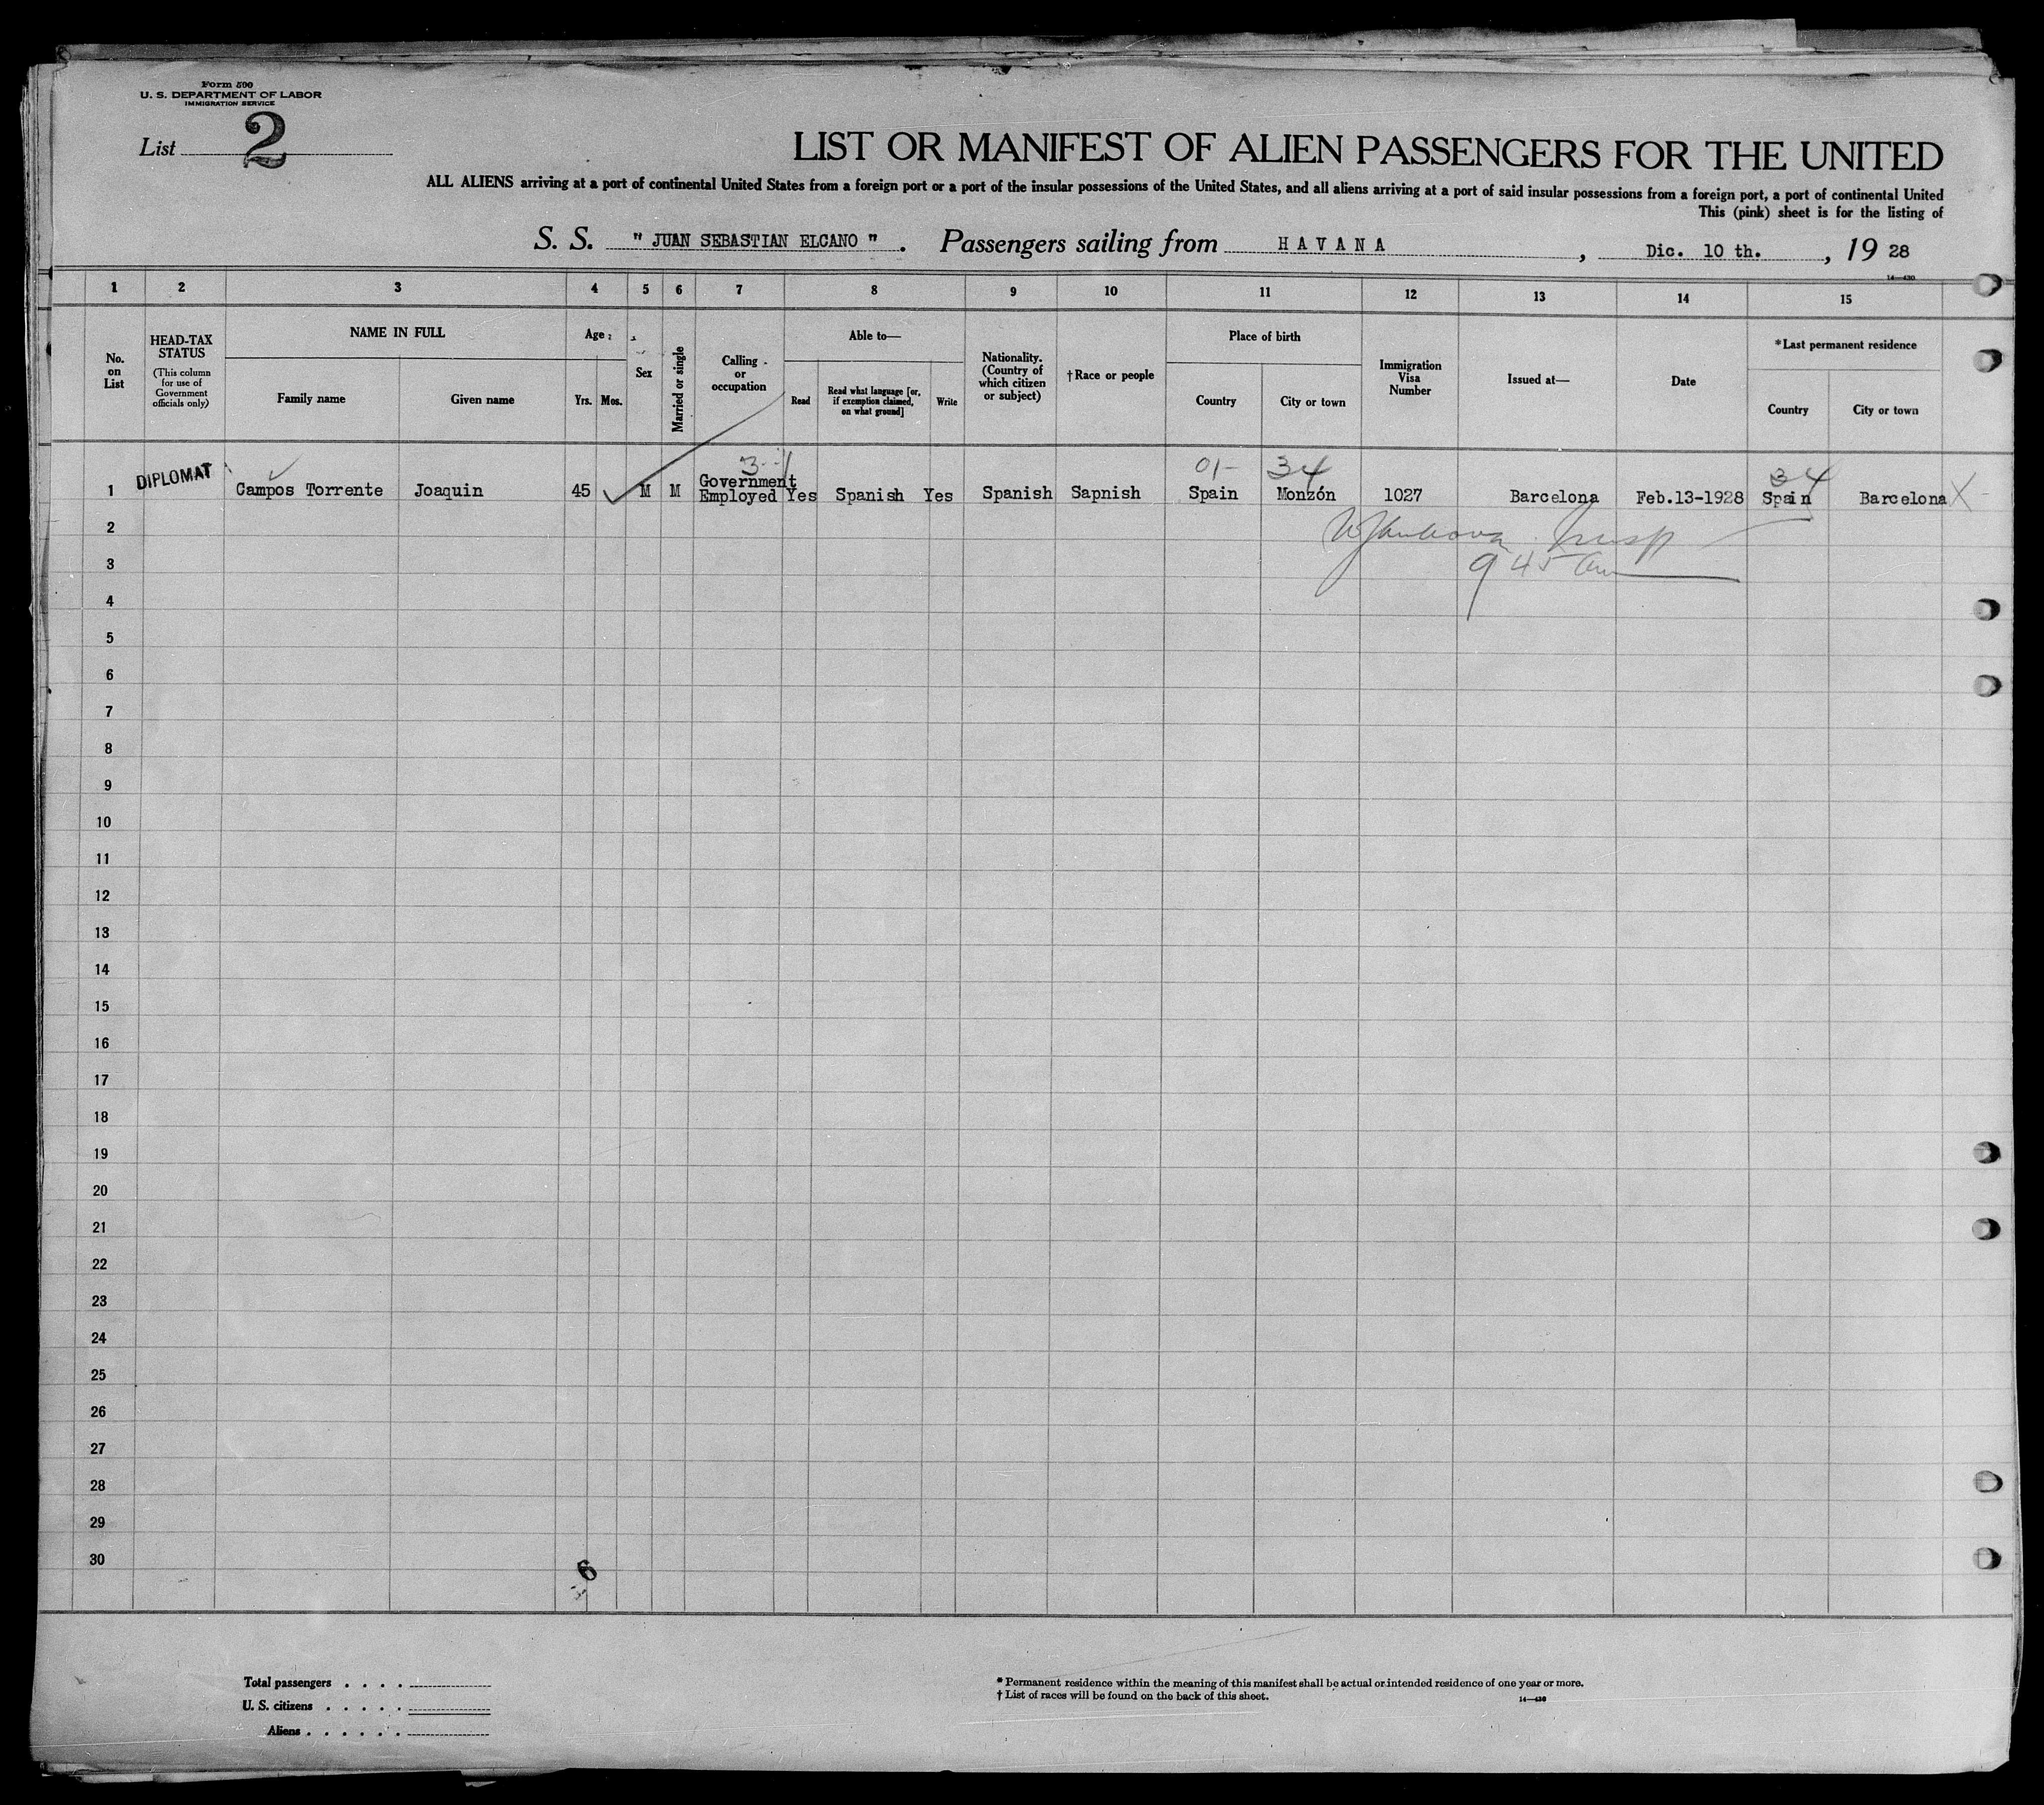 Form 500
U. S. DEPARTMENT OF LABOR
IMMIGRATION SERVICE
List 2
LIST OR MANIFEST OF ALIEN PASSENGERS FOR THE UNITED
ALL ALIENS arriving at a port of continental United States from a foreign port or a port of the insular possessions of the United States, and all aliens arriving at a port of said insular possessions from a foreign port, a port of continental United
This (pink) sheet is for the listing of
S. S. " JUAN SEBASTIAN ELCANO " . Passengers sailing from HAVANA , Dic. 10 th. , 19 28
14—430
1 2 3 4 5 6 7 8 9 10 11 12 13 14 15
No. on List
HEAD-TAX STATUS
(This column for use of Government officials only)
NAME IN FULL
Family name
Given name
Age
Yrs.
Mos.
Sex
Married or single
Calling or occupation
Able to—
Read
Read what language [or, if exemption claimed, on what ground]
Write
Nationality. (Country of which citizen or subject)
†Race or people
Place of birth
Country
City or town
Immigration Visa Number
Issued at—
Date
*Last permanent residence
Country
City or town
3- 01- 34 34
1 DIPLOMAT Campos Torrente Joaquin 45 M M Government Employed Yes Spanish Yes Spanish Sapnish Spain Monzón 1027 Barcelona Feb.13-1928 Spain Barcelona X
2
3 9 45 am
4
5
6
7
8
9
10
11
12
13
14
15
16
17
18
19
20
21
22
23
24
25
26
27
28
29
30
6
Total passengers . . . .
U. S. citizens . . . . .
Aliens . . . . . .
* Permanent residence within the meaning of this manifest shall be actual or intended residence of one year or more.
† List of races will be found on the back of this sheet.
14—430